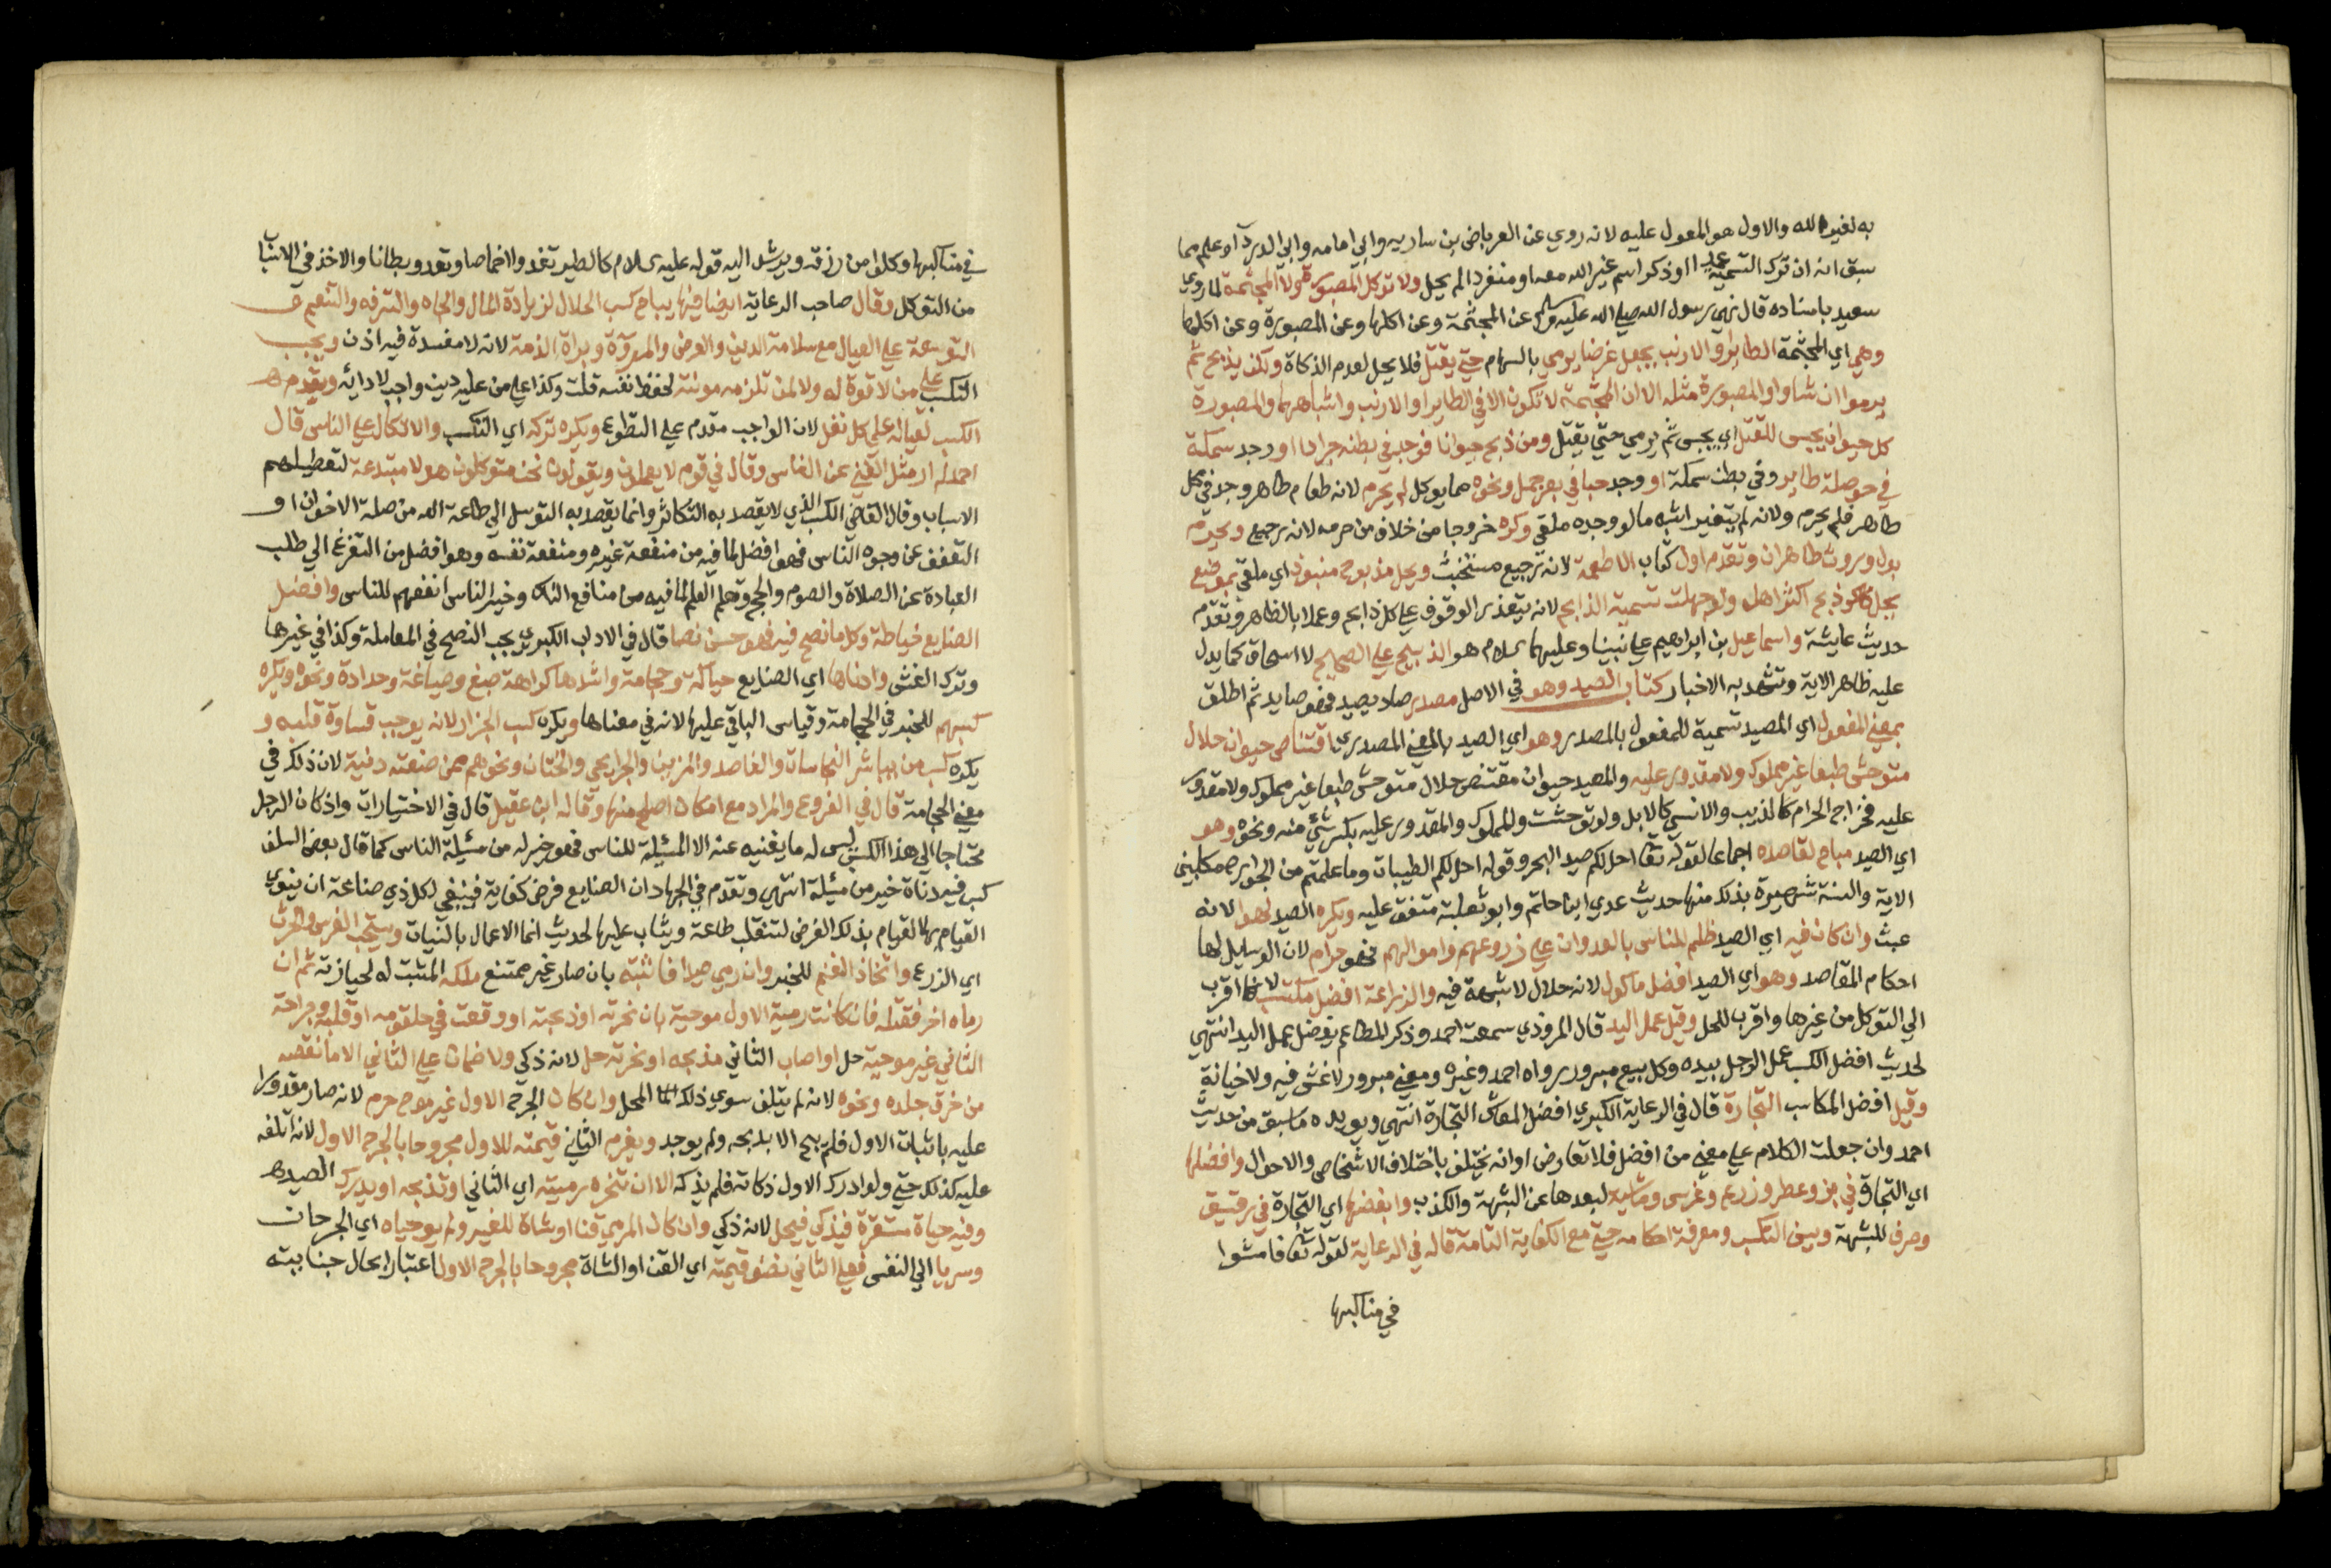 به لغير الله والاول هو المعول عليه لانه روي عن العرباض بن سارية وابي امامه وابي الدرداء وعلم مما
سبق انه ان ترك التسمية عمدا او ذكر اسم غير الله معه او منفردا لم يحل ولا توكل المصبورة ولا المجثمة لما روي
سعيد باسناده قال نهي رسول الله صلي الله عليه وسلم عن المجثمة وعن اكلها وعن المصبورة وعن اكلها
وهي اي المجثمة الطاير او الارنب يجعل غرضا يرمي بالسهام حتي يقتل فلا يحل لعدم الذكاة ولكن يذبح ثم
يرموا ان شاوا والمصبورة مثله الا ان المجثمة لا تكون الا في الطاير او الارنب واشباههما والمصبورة
كل حيوان يحبس للقتل اي يحبس ثم يرمي حتي يقتل ومن ذبح حيوانا فوجد في بطنه جرادا او وجد سمكة
في حوصلة طاير وفي بطن سمكة او وجد حبا في بعر جمل ونحوه مما يوكل لم يحرم لانه طعام طاهر وجد في محل
طاهر فلم يحرم ولانه لم يتغير اشبه ما لو وجده ملقي وكره خروجا من خلاف من حرمه لانه رجيع ويحرم
بول وروث طاهران وتقدم اول كتاب الاطعمة لانه رجيع مستخبث ويحل مذبوح منبوذ اي ملقي بموضع
يحل ذبح اكثر اهله ولو جهلت تسمية الذابح لانه يتعذر الوقوف علي كل ذابح وعملا بالظاهر وتقدم
حديث عايشة واسماعيل بن ابراهيم علي نبينا وعليهما السلام هو الذبيح علي الصحيح لا اسحاق كما يدل
عليه ظاهر الاية وتشهد به الاخبار كتاب الصيد وهو في الاصل مصدر صاد يصيد فهو صايد ثم اطلق
بمعني المفعول اي المصيد تسمية للمفعول بالمصدر وهو اي الصيد بالمعني المصدري اقتناص حيوان حلال
متوحش طبعا غير مملوك ولا مقدور عليه والمصيد حيوان مقتنص حلال متوحش طبعا غير مملوك ولا مقدور
عليه فخراج الحرام كالذيب والانسي كالابل ولو توحشت والمملوك والمقدور عليه بكسر شيء منه ونحوه وهو
اي الصيد مباح لقاصده اجماعا لقوله تعا احل لكم صيد البحر وقوله احل لكم الطيبات وما علمتم من الجوارح مكلبين
الاية والسنة شهيرة بذلك منها حديث عدي ابن حاتم وابو ثعلبة متفق عليه ويكره الصيد لهوا لانه
عبث وان كان فيه اي الصيد ظلم للناس بالعدوان علي زروعهم واموالهم فهو حرام لان الوسايل لها
احكام المقاصد وهو اي الصيد افضل ماكول لانه حلال لا شبهة فيه والزراعة افضل مكتسب لانها اقرب
الي التوكل من غيرها واقرب للحل وقيل عمل اليد قال المروذي سمعت احمد وذكر المطاعم يفضل عمل اليد انتهي
لحديث افضل الكسب عمل الرجل بيده وكل بيع مبرور رواه احمد وغيره ومعني مبرور لا غش فيه ولا خيانة
وقيل افضل المكاسب التجارة قال في الرعاية الكبري افضل المعاش التجارة انتهي ويويده ما سبق من حديث
احمد وان جعلت الكلام علي معني من افضل فلا تعارض او انه يختلف باختلاف الاشخاص والاحوال وافضلها
اي التجارة في بز وعطر وزرع وغرس وماشية لبعدها عن الشبهة والكذب وابغضها اي التجارة في رقيق
وصرف للشبهة ويسن التكسب ومعرفة احكامه حتي مع الكفاية التامة قاله في الرعاية لقوله تعا فامشوا
في مناكبها
في مناكبها وكلوا من رزقه ويرشد اليه قوله عليه السلام كالطير تغدوا خماصا وتعود بطانا والاخذ في الاسباب
من التوكل وقال صاحب الرعاية ايضا فيها يباح كسب الحلال لزيادة المال والجاه والترفه والتنعم و
التوسعة علي العيال مع سلامة الدين والعرض والمروّة وبراة الذمة لانه لا مفسدة فيه اذن ويجب
التكسب علي من لا قوة له ولا لمن تلزمه مونته لحفظ نفسه قلت وكذا علي من عليه دين واجب لادائه ويقدم
الكسب لعياله علي كل نفل لان الواجب مقدم علي التطوع ويكره تركه اي التكسب والاتكال علي الناس قال
احمد لم ار مثل الغني عن الناس وقال في قوم لا يعملون ويقولون نحن متوكلون هولا مبتدعة لتعطيلهم
الاسباب وقال القاضي الكسب الذي لا يقصد به التكاثر وانما يقصد به التوسل الي طاعة الله من صلة الاخوان او
التعفف عن وجوه الناس فهو افضل لما فيه من منفعة غيره ومنفعة نفسه وهو افضل من التفرغ الي طلب
العبادة من الصلاة والصوم والحج وتعلم العلم لما فيه من منافع الناس وخير الناس انفعهم للناس وافضل
الصنايع خياطة وكل ما نصح فيه فهو حسن نصا قال في الاداب الكبري يجب النصح في المعاملة وكذا في غيرها
وترك الغش وادناها اي الصنايع حياكة وحجامة واشدها كراهة صبغ وصياغة وحدادة ونحوه ويكره
كسبهم للخبر في الحجامة وقياس الباقي عليها لانه في معناها ويكره كسب الجزار لانه يوجب قساوة قلبه و
يكره كسب من يباشر النجاسات والفاصد والمزين والجرايحي والختان ونحوهم ممن صنعته دنية لان ذلك في
معني الحجامة قال في الفروع والمراد مع امكان اصلح منها وقاله ابن عقيل قال في الاختيارات واذا كان الرجل
محتاجا الي هذا الكسب ليس له ما يغنيه عنه الا المسيلة للناس فهو خير له من مسيلة الناس كما قال بعض السلف
كسب فيه دناة خير من مسيلة انتهي وتقدم في الجهاد ان الصنايع فرض كفاية فينبغي لكل ذي صناعة ان ينوي
القيام بها القيام بذلك الفرض لتنقلب طاعة ويثاب عليها لحديث انما الاعمال بالنيات ويستحب الغرس والحرث
اي الزرع واتخاذ الغنم للخبر وان رمي صيدا فاثبته بان صار غير ممتنع ملكه المثبت له لحيازته ثم ان
رماه اخر فقتله فان كانت رمية الاول موحية بان نحرته او ذبحته او وقعت في حلقومه او قلبه وجراحة
الثاني غير موحية حل او اصاب الثاني مذبحه او نحره حل لانه ذكي ولا ضمان علي الثاني الا ما نقصه
من خرق جلده ونحوه لانه لم يتلف سوي ذلك المحل وان كان الجرح الاول غير موح حرم لانه صار مقدورا
عليه باثبات الاول فلم يبح الا بذبحه ولم يوجد ويغرم الثاني قيمته للاول مجروحا بالجرح الاول لانه اتلفه
عليه كذلك حتي ولو ادرك الاول ذكاته فلم يذكه الا ان تنحره رميته اي الثاني او تذبحه او يدرك الصيد
وفيه حياة مستقرة فيذكي فيحل لانه ذكي وان كان المرمي قنا او شاة للغير ولم يوحياه اي الجرحان
وسريا الي النفس فعلي الثاني نصف قيمته اي القن او الشاة مجروحا بالجرح الاول اعتبارا بحال جنايته